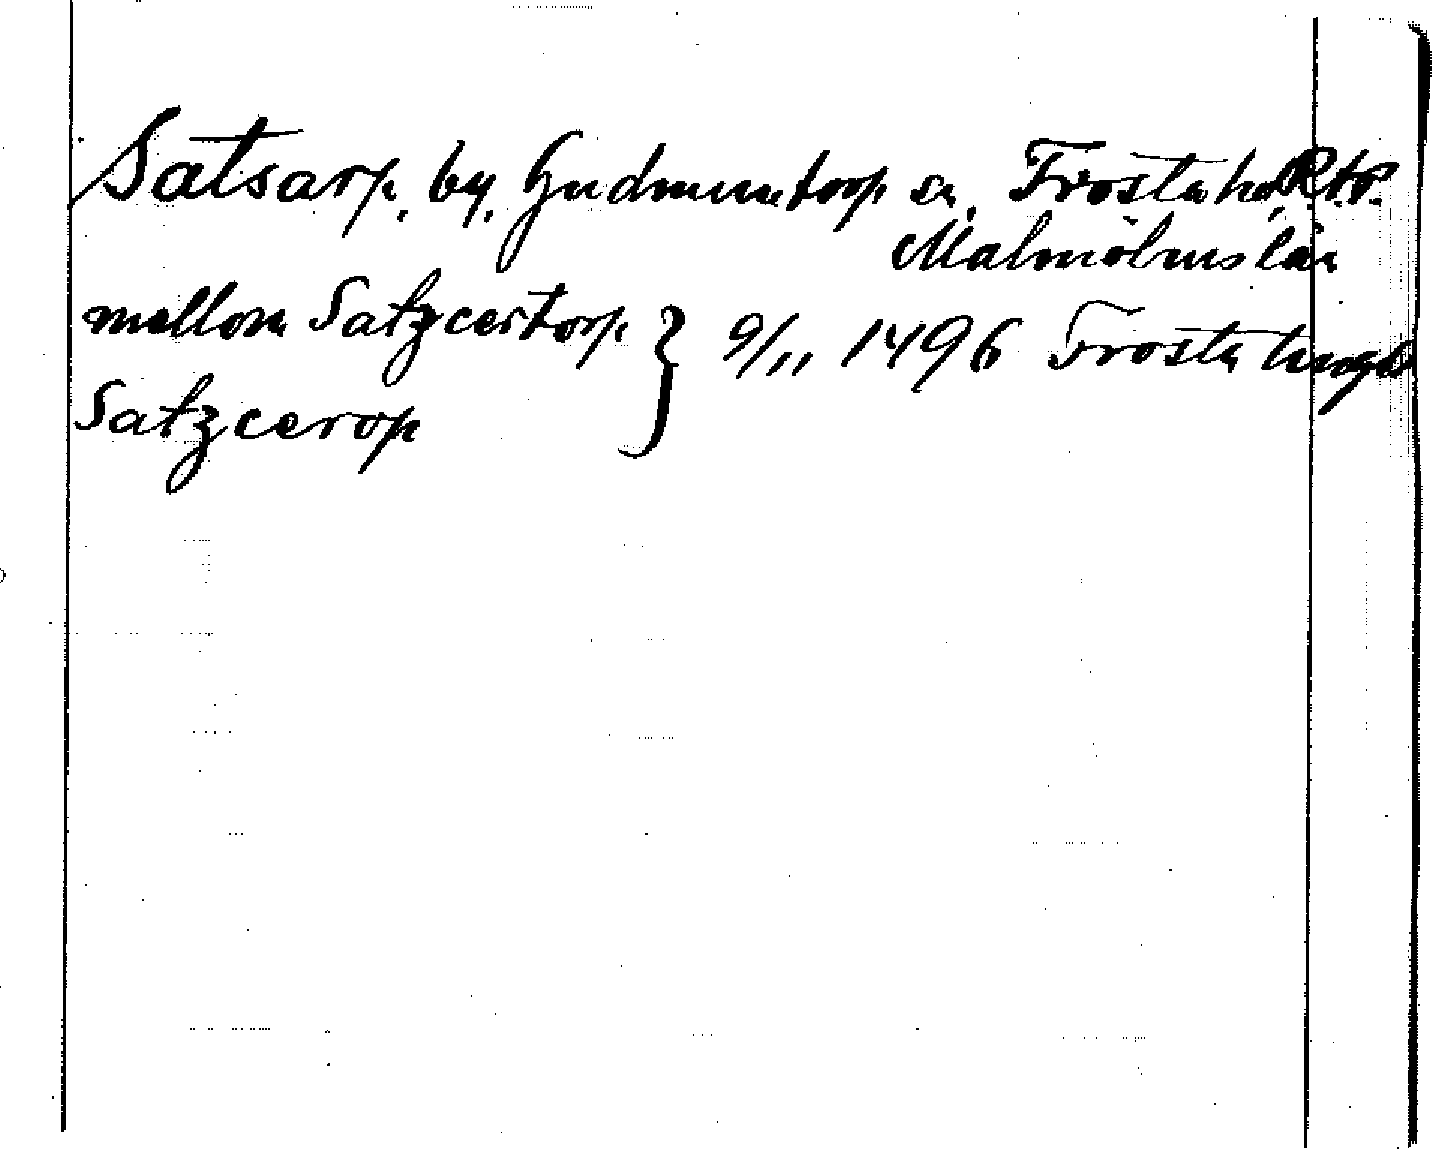 Satsarp, by, Gudmuntorp sn, Frosta hd, R.t.P.
Malmöhus län
mellom Satzcertorp } 9/11 1496 Frosta tingb
Satzcerop